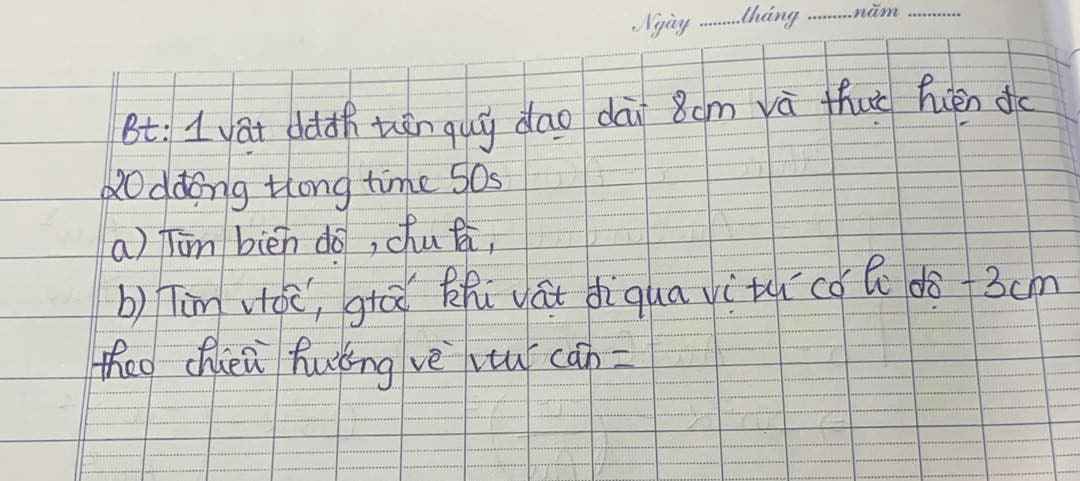 Ngày ........tháng .........năm ...........
Bt: 1 vật dđđh trên quỹ đạo dài 8cm và thực hiện đc
20 dđộng trong time 50s
a) Tìm biên độ, chu kì,
b) Tìm vtốc, gtốc khi vật đi qua vị trí có li độ -3cm
theo chiều hướng về vtrí cân =